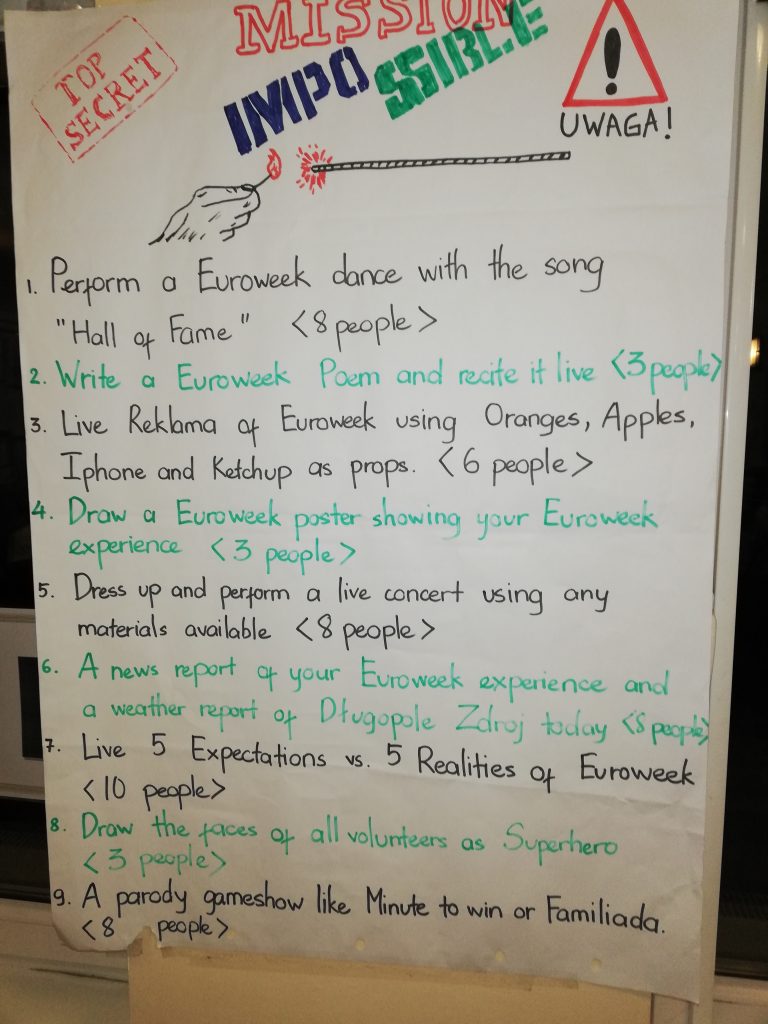 TOP
SECRET
MISSION
IMPOSSIBLE
UWAGA!
1. Perform a Euroweek dance with the song
"Hall of Fame" <8 people>
2. Write a Euroweek Poem and recite it live <3 people>
3. Live Reklama of Euroweek using Oranges, Apples,
Iphone and Ketchup as props. <6 people>
4. Draw a Euroweek poster showing your Euroweek
experience <3 people>
5. Dress up and perform a live concert using any
materials available <8 people>
6. A news report of your Euroweek experience and
a weather report of Długopole Zdroj today <8 people>
7. Live 5 Expectations vs. 5 Realities of Euroweek
<10 people>
8. Draw the faces of all volunteers as Superhero
<3 people>
9. A parody gameshow like Minute to win or Familiada.
<8 people>